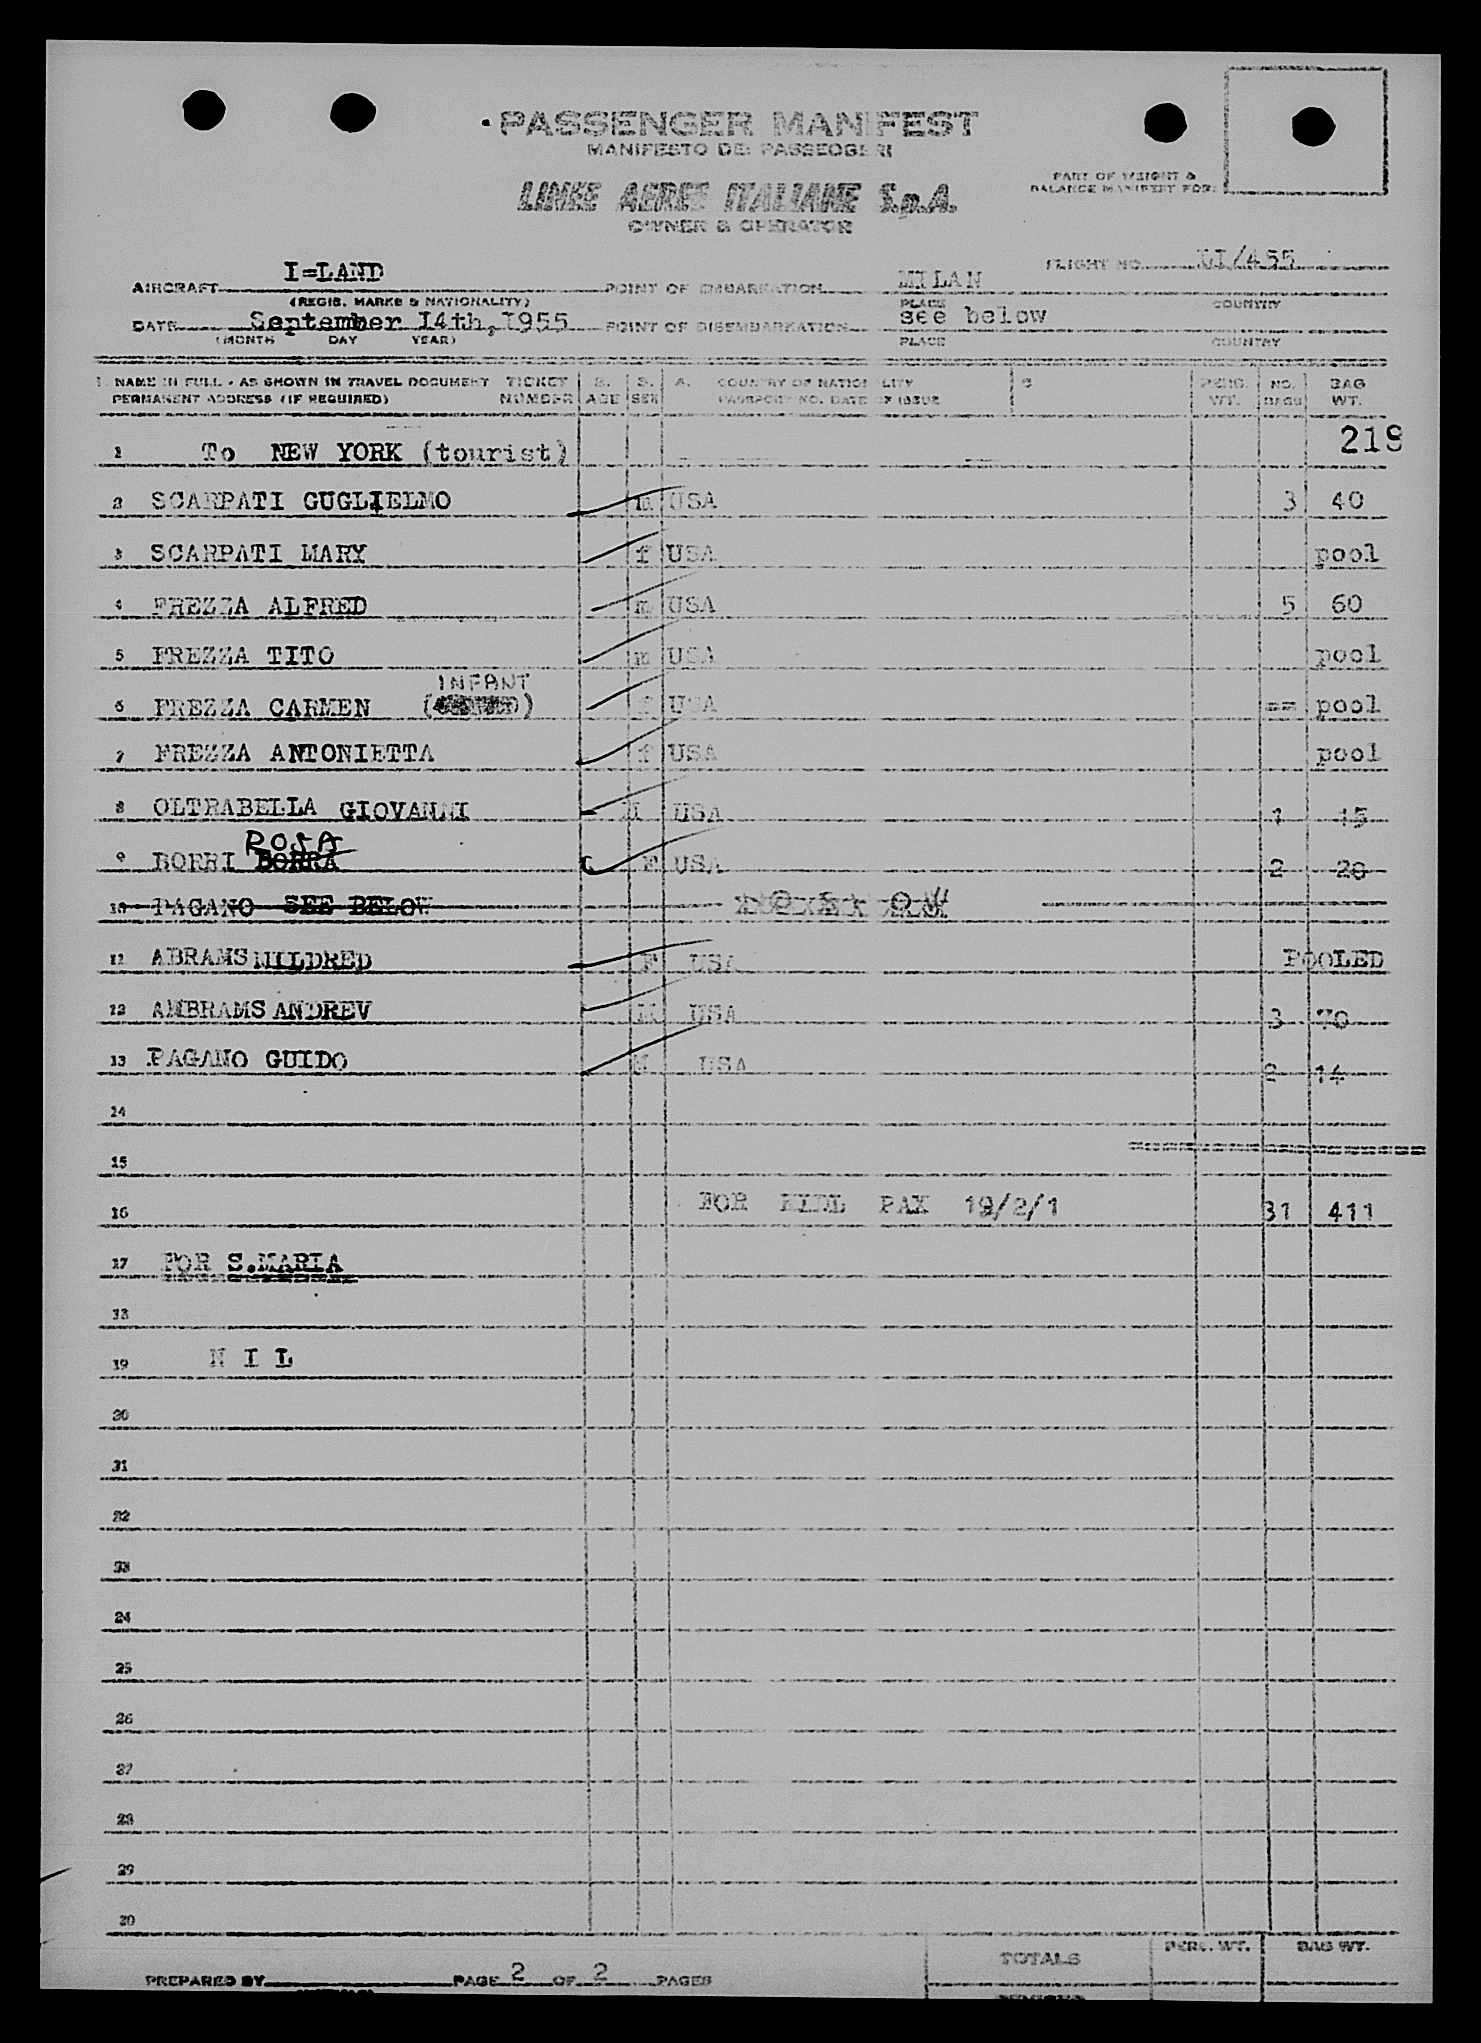 PASSENGER MANIFEST
MANIFESTO DEI PASSEGGERI
LINEE AEREE ITALIANE S.p.A.
OWNER & OPERATOR
PART OF WEIGHT &
BALANCE MANIFEST FOR:
AIRCRAFT I=LAND POINT OF EMBARKATION MILAN FLIGHT NO. LI/455
(REGIS. MARKS & NATIONALITY) PLACE COUNTRY
DATE September 14th,1955 POINT OF DISEMBARKATION see below
(MONTH DAY YEAR) PLACE COUNTRY
1. NAME IN FULL - AS SHOWN IN TRAVEL DOCUMENT TICKET 2. 3. 4. COUNTRY OF NATIONALITY NO. BAG
PERMANENT ADDRESS (IF REQUIRED) NUMBER AGE SEX PASSPORT NO. DATE OF ISSUE WT. BAGS WT.
1 To NEW YORK (tourist) 218
2 SCARPATI GUGLIELMO m USA 3 40
3 SCARPATI MARY f USA pool
4 FREZZA ALFRED m USA 5 60
5 FREZZA TITO m USA pool
INFANT
6 FREZZA CARMEN ( ) f USA == pool
7 FREZZA ANTONIETTA f USA pool
8 OLTRABELLA GIOVANNI M USA 1 15
ROSA
9 BORRI BORRA F USA 2 20
10 PAGANO SEE BELOW
11 ABRAMS MILDRED F USA POOLED
12 AMBRAMS ANDREV M USA 3 70
13 PAGANO GUIDO M USA 2 14
14
15 ====================
16 FOR PAX 19/2/1 31 411
17 FOR S.MARIA
18
19 N I L
20
21
22
23
24
25
26
27
28
29
30
TOTALS PERS. WT. BAG WT.
PREPARED BY PAGE 2 OF 2 PAGES